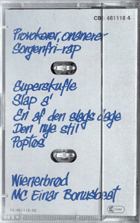 CBS 461118 4
Provokerer, onanerer
Sorgenfri-rap
Superskufle
Slap a'
En af den slags dage
Den nye stil
Poptøs
Wienerbrød
MC Einar Bonusbeat